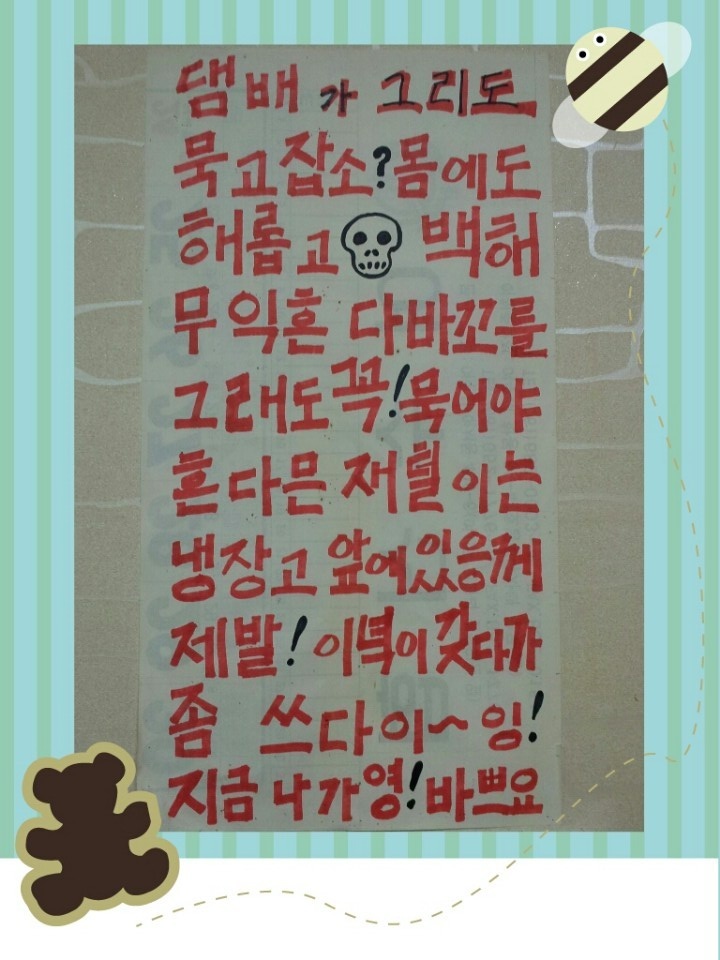 댐배가 그리도
묵고잡소?몸에도
해롭고 백해
무익흔 다바꼬를
그래도꼭!묵어야
흔다믄 재털이는
냉장고 앞에있응께
제발! 이녁이갖다가
좀 쓰다이~잉!
지금나가영!바쁘요